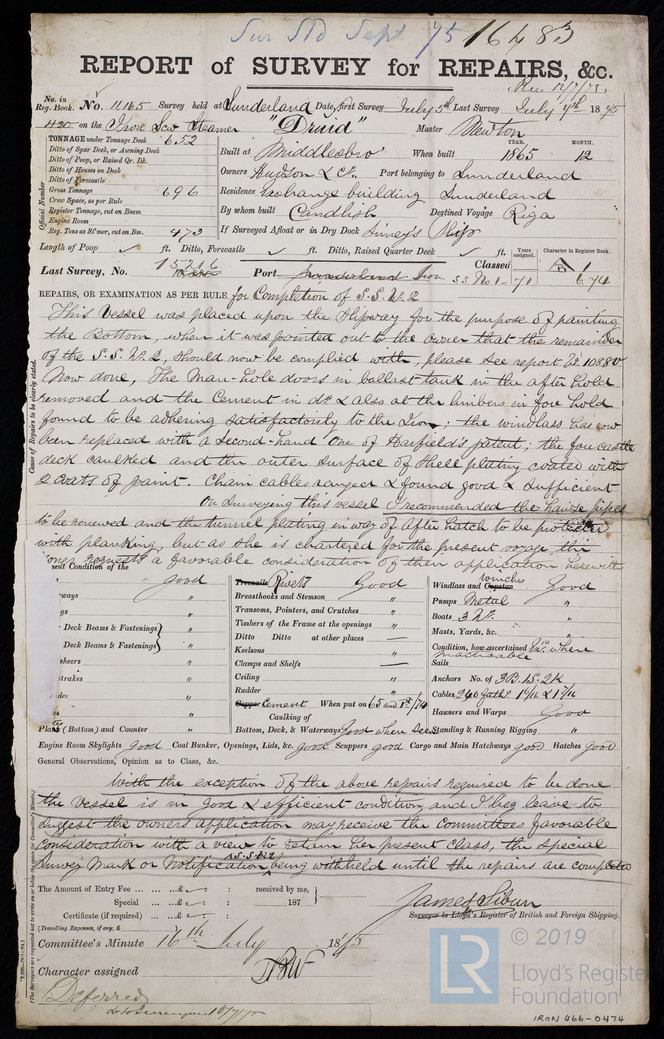 Sur SID Sept 75 16483
REPORT of SURVEY for REPAIRS, &c.
No. in Reg. Book. No. 11165 Survey held at Sunderland Date, first Survey July 5th Last Survey July 7th 1875
1420 on the Iron Scw Steamer "Druid" Master Newton
TONNAGE under Tonnage Deck 652
Ditto of Spar Deck, or Awning Deck
Ditto of Poop, or Raised Qr. Dk.
Ditto of Houses on Deck
Ditto of Forecastle
Gross Tonnage 696
Crew Space, as per Rule
Register Tonnage, cut on Beam
Engine Room
Reg. Tons as St'mer, cut on Bm. 473
Official Number
Built at Middlesbro' When built YEAR. 1865 MONTH. 12
Owners Hudson & Co. Port belonging to Sunderland
Residence Exchange building Sunderland
By whom built Candlish Destined Voyage Riga
If Surveyed Afloat or in Dry Dock Slip
Length of Poop ft. Ditto, Forecastle ft. Ditto, Raised Quarter Deck ft. Years assigned. Character in Register Book.
Last Survey, No. 15216 Port Sunderland Iron Classed S.S. No 1-71 A 1 6,74
REPAIRS, OR EXAMINATION AS PER RULE for Completion of S.S. No. 2
This Vessel was placed upon the Slipway for the purpose of painting
the Bottom, when it was pointed out to the owner that the remainder
of the S.S. No. 2, should now be complied with, please see report No 10880
Now done, The Man-hole doors in ballast tank in the after hold
removed and the Cement in do. & also at the limbers in fore hold
found to be adhering satisfactorily to the Iron; the windlass has now
been replaced with a second-hand one of Harfield's patent; the fore castle
deck caulked and the outer surface of shell plating coated with
2 coats of paint. Chain cables ranged & found good & sufficient
On Surveying this vessel I recommended the hawse pipes
to be renewed and the tunnel plating in way of after hatch to be protected
with planking, but as she is chartered for the present voyage, the
owners request a favorable consideration of their application herewith
Cause of Repairs to be clearly stated.
ent Condition of the good
rways "
gs "
Deck Beams & Fastenings "
Deck Beams & Fastenings "
sheers "
trakes "
des "
s "
Planks (Bottom) and Counter "
Treenails Rivets Good
Breasthooks and Stemson "
Transoms, Pointers, and Crutches "
Timbers of the Frame at the openings "
Ditto Ditto at other places —
Keelsons "
Clamps and Shelfs —
Ceiling "
Rudder "
Copper Cement When put on 65 and Pt/74
Caulking of
Bottom, Deck, & Waterways Good when seen
Windlass and Capstan winches Good
Pumps Metal "
Boats 3 No. "
Masts, Yards, &c. "
Condition, how ascertained Ex. where practicable
Sails
Anchors No. of 3B. 1S. 2K
Cables 240 faths. 1 6/16 & 1 5/16
Hawsers and Warps Good
Standing & Running Rigging "
Engine Room Skylights good Coal Bunker, Openings, Lids, &c. good Scuppers good Cargo and Main Hatchways good Hatches good
General Observations, Opinion as to Class, &c.
With the exception of the above repairs required to be done
the Vessel is in good & efficient condition, and I beg leave to
suggest the owners application may receive the Committees favorable
consideration with a view to retain her present class, the special
Survey Mark or Notification S.S. No 2 being withheld until the repairs are completed
The Amount of Entry Fee ... ... £ : : received by me,
Special ... ... £ : : 187
Certificate (if required) ... £ : :
(Travelling Expenses, if any, £
James Sibun
Surveyor to Lloyd's Register of British and Foreign Shipping.
Committee's Minute 16th July 1875
Character assigned
Deferred
(The Surveyors are requested not to write on or below the space for Committee's Minute.)
© 2019
LR Lloyd's Register Foundation
IRON 466-0474